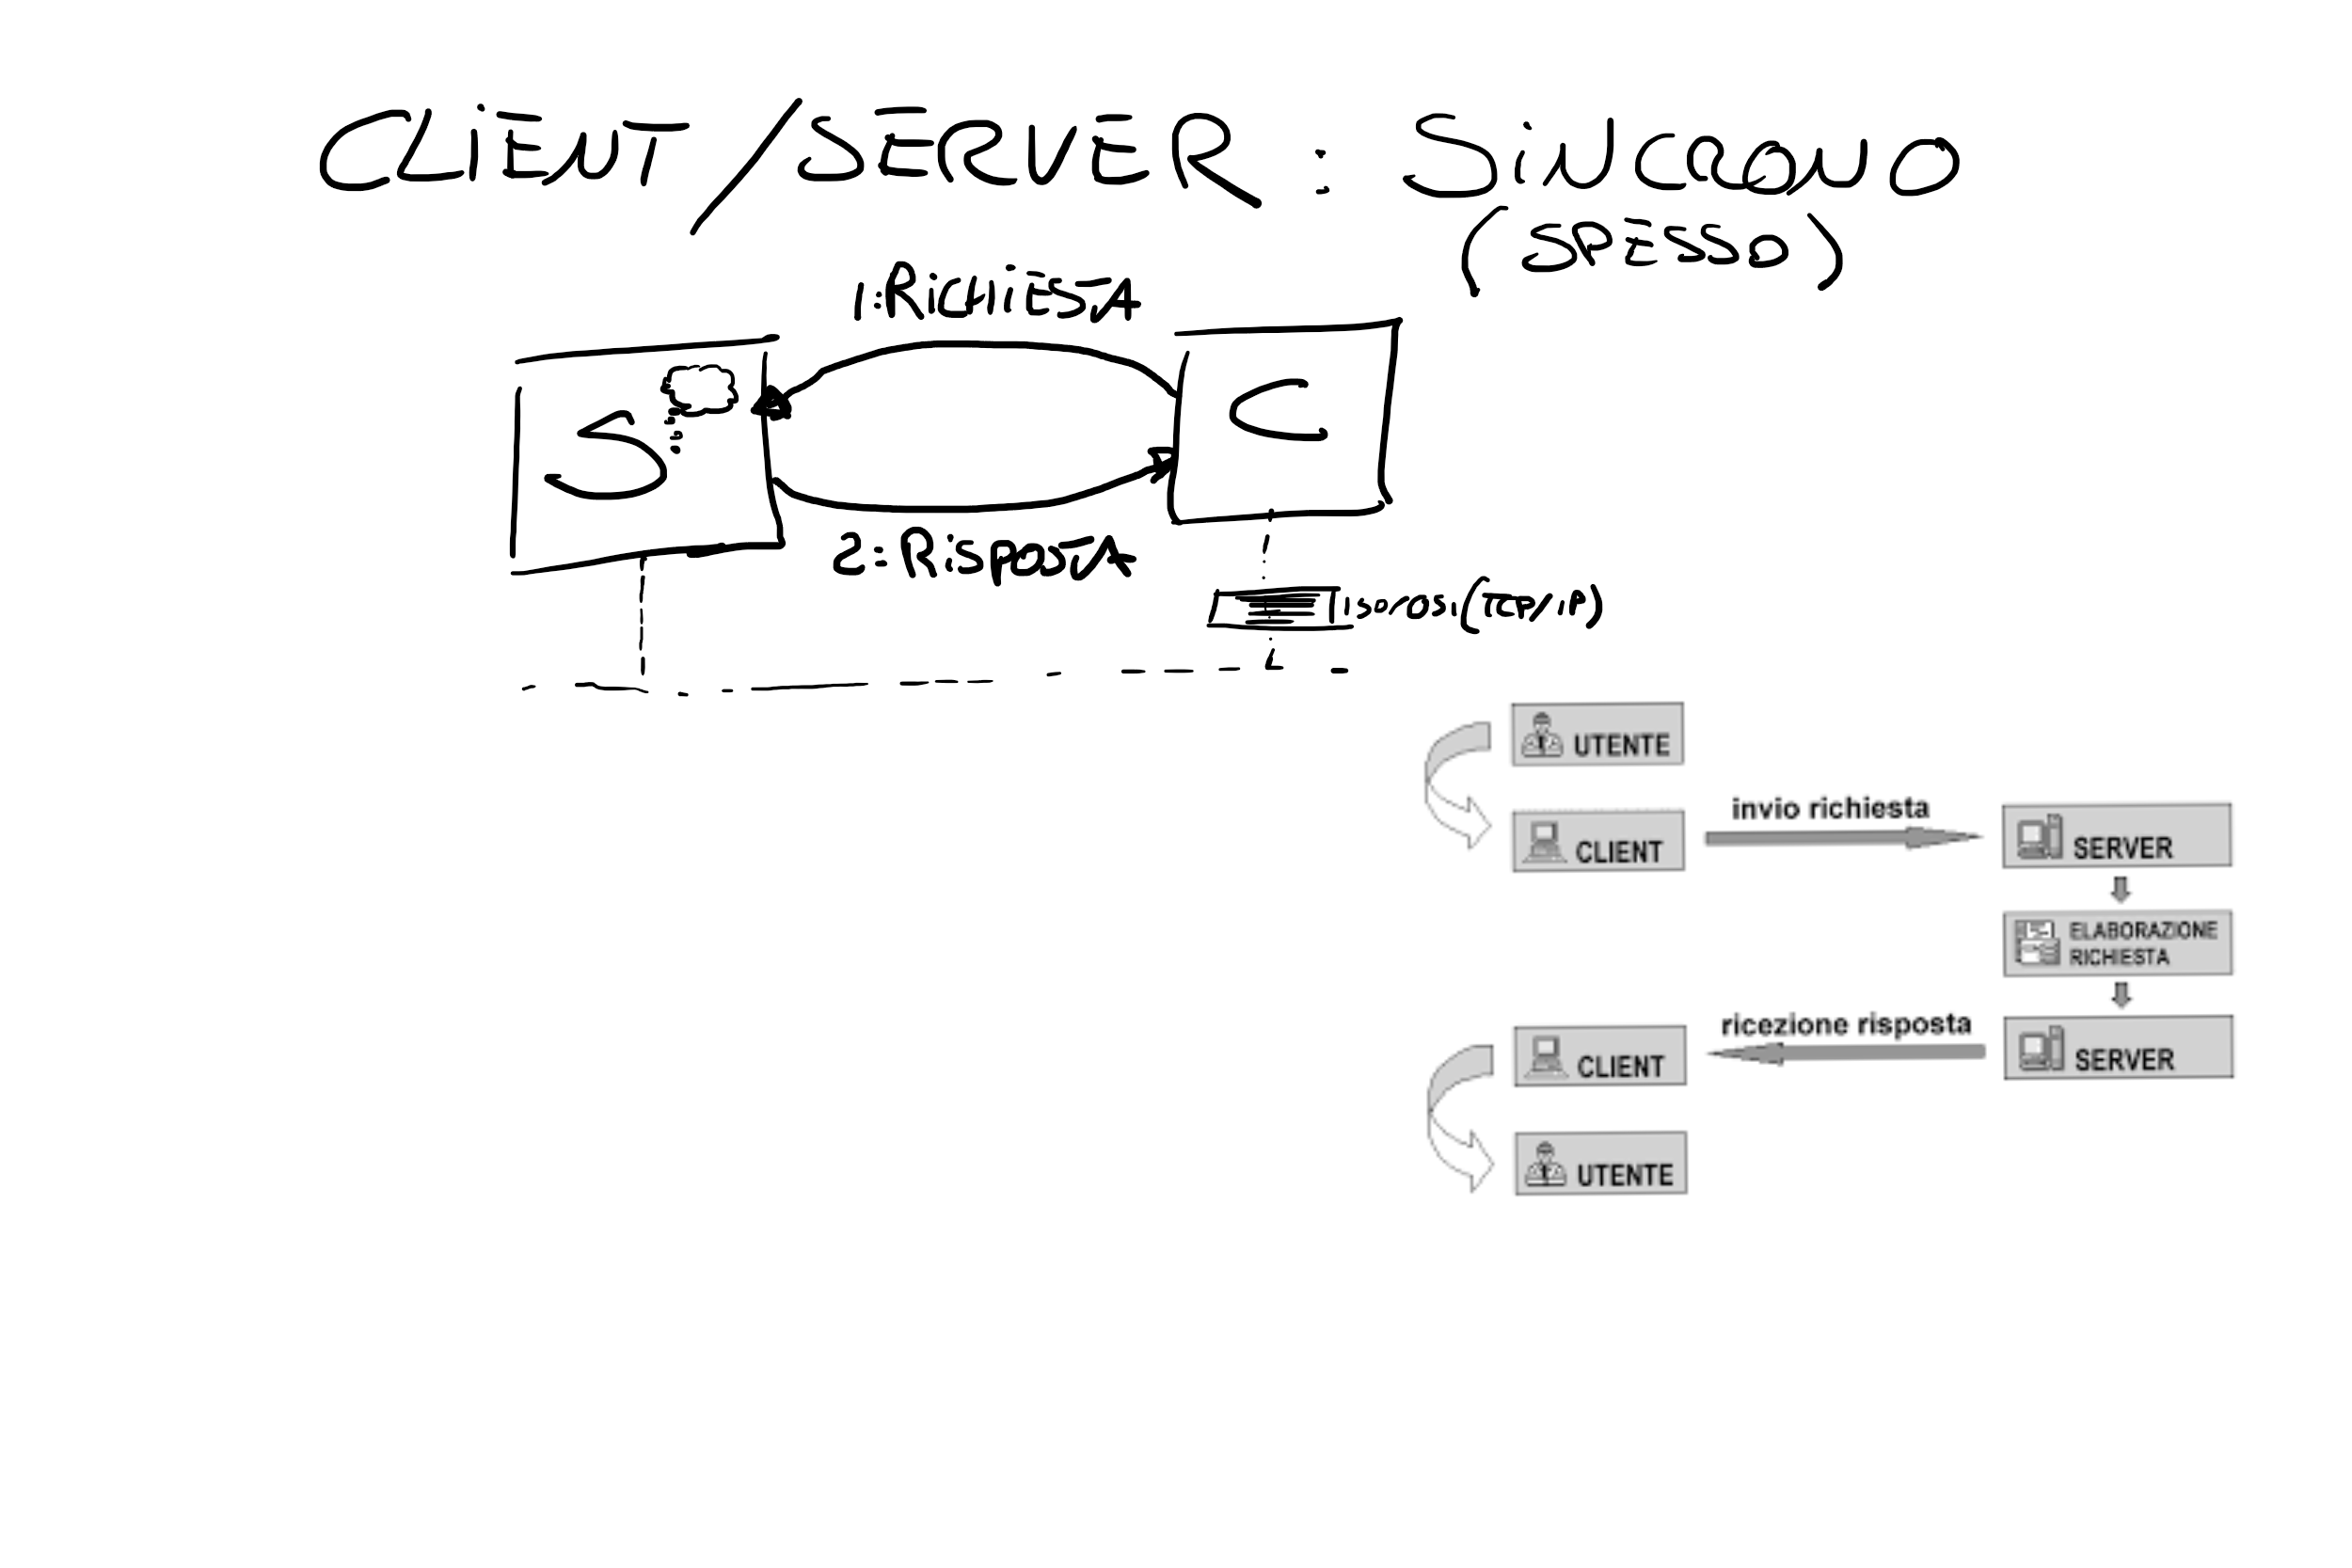 CLiENT/SERVER : SiNCRONO
(SPESSO)
1:RiCHiESTA
S
C
2:RiSPOSTA
ISO/OSI(TCP/iP)
UTENTE
invio richiesta
CLIENT
SERVER
ELABORAZIONE
RICHIESTA
ricezione risposta
CLIENT
SERVER
UTENTE